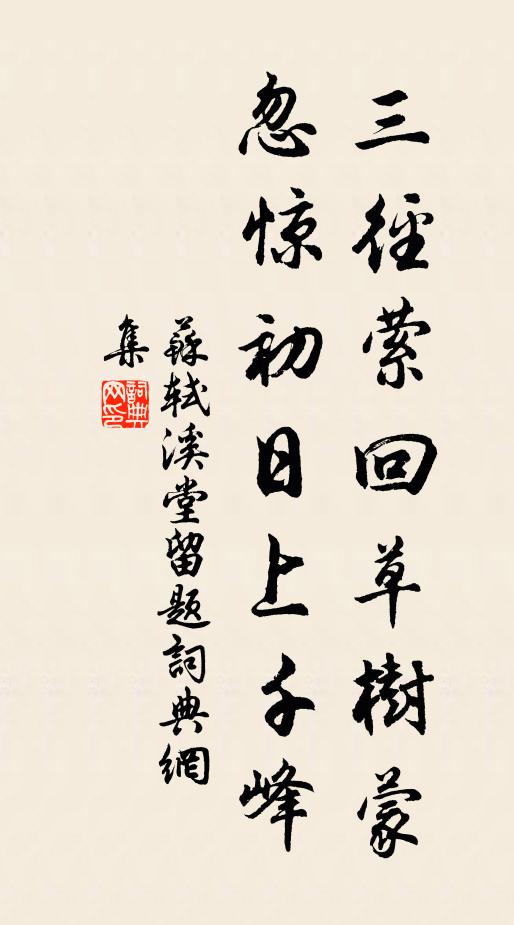 三徑萦回草樹蒙
忽惊初日上千峰
蘇軾溪堂留题詞典網
集
詞典
网印